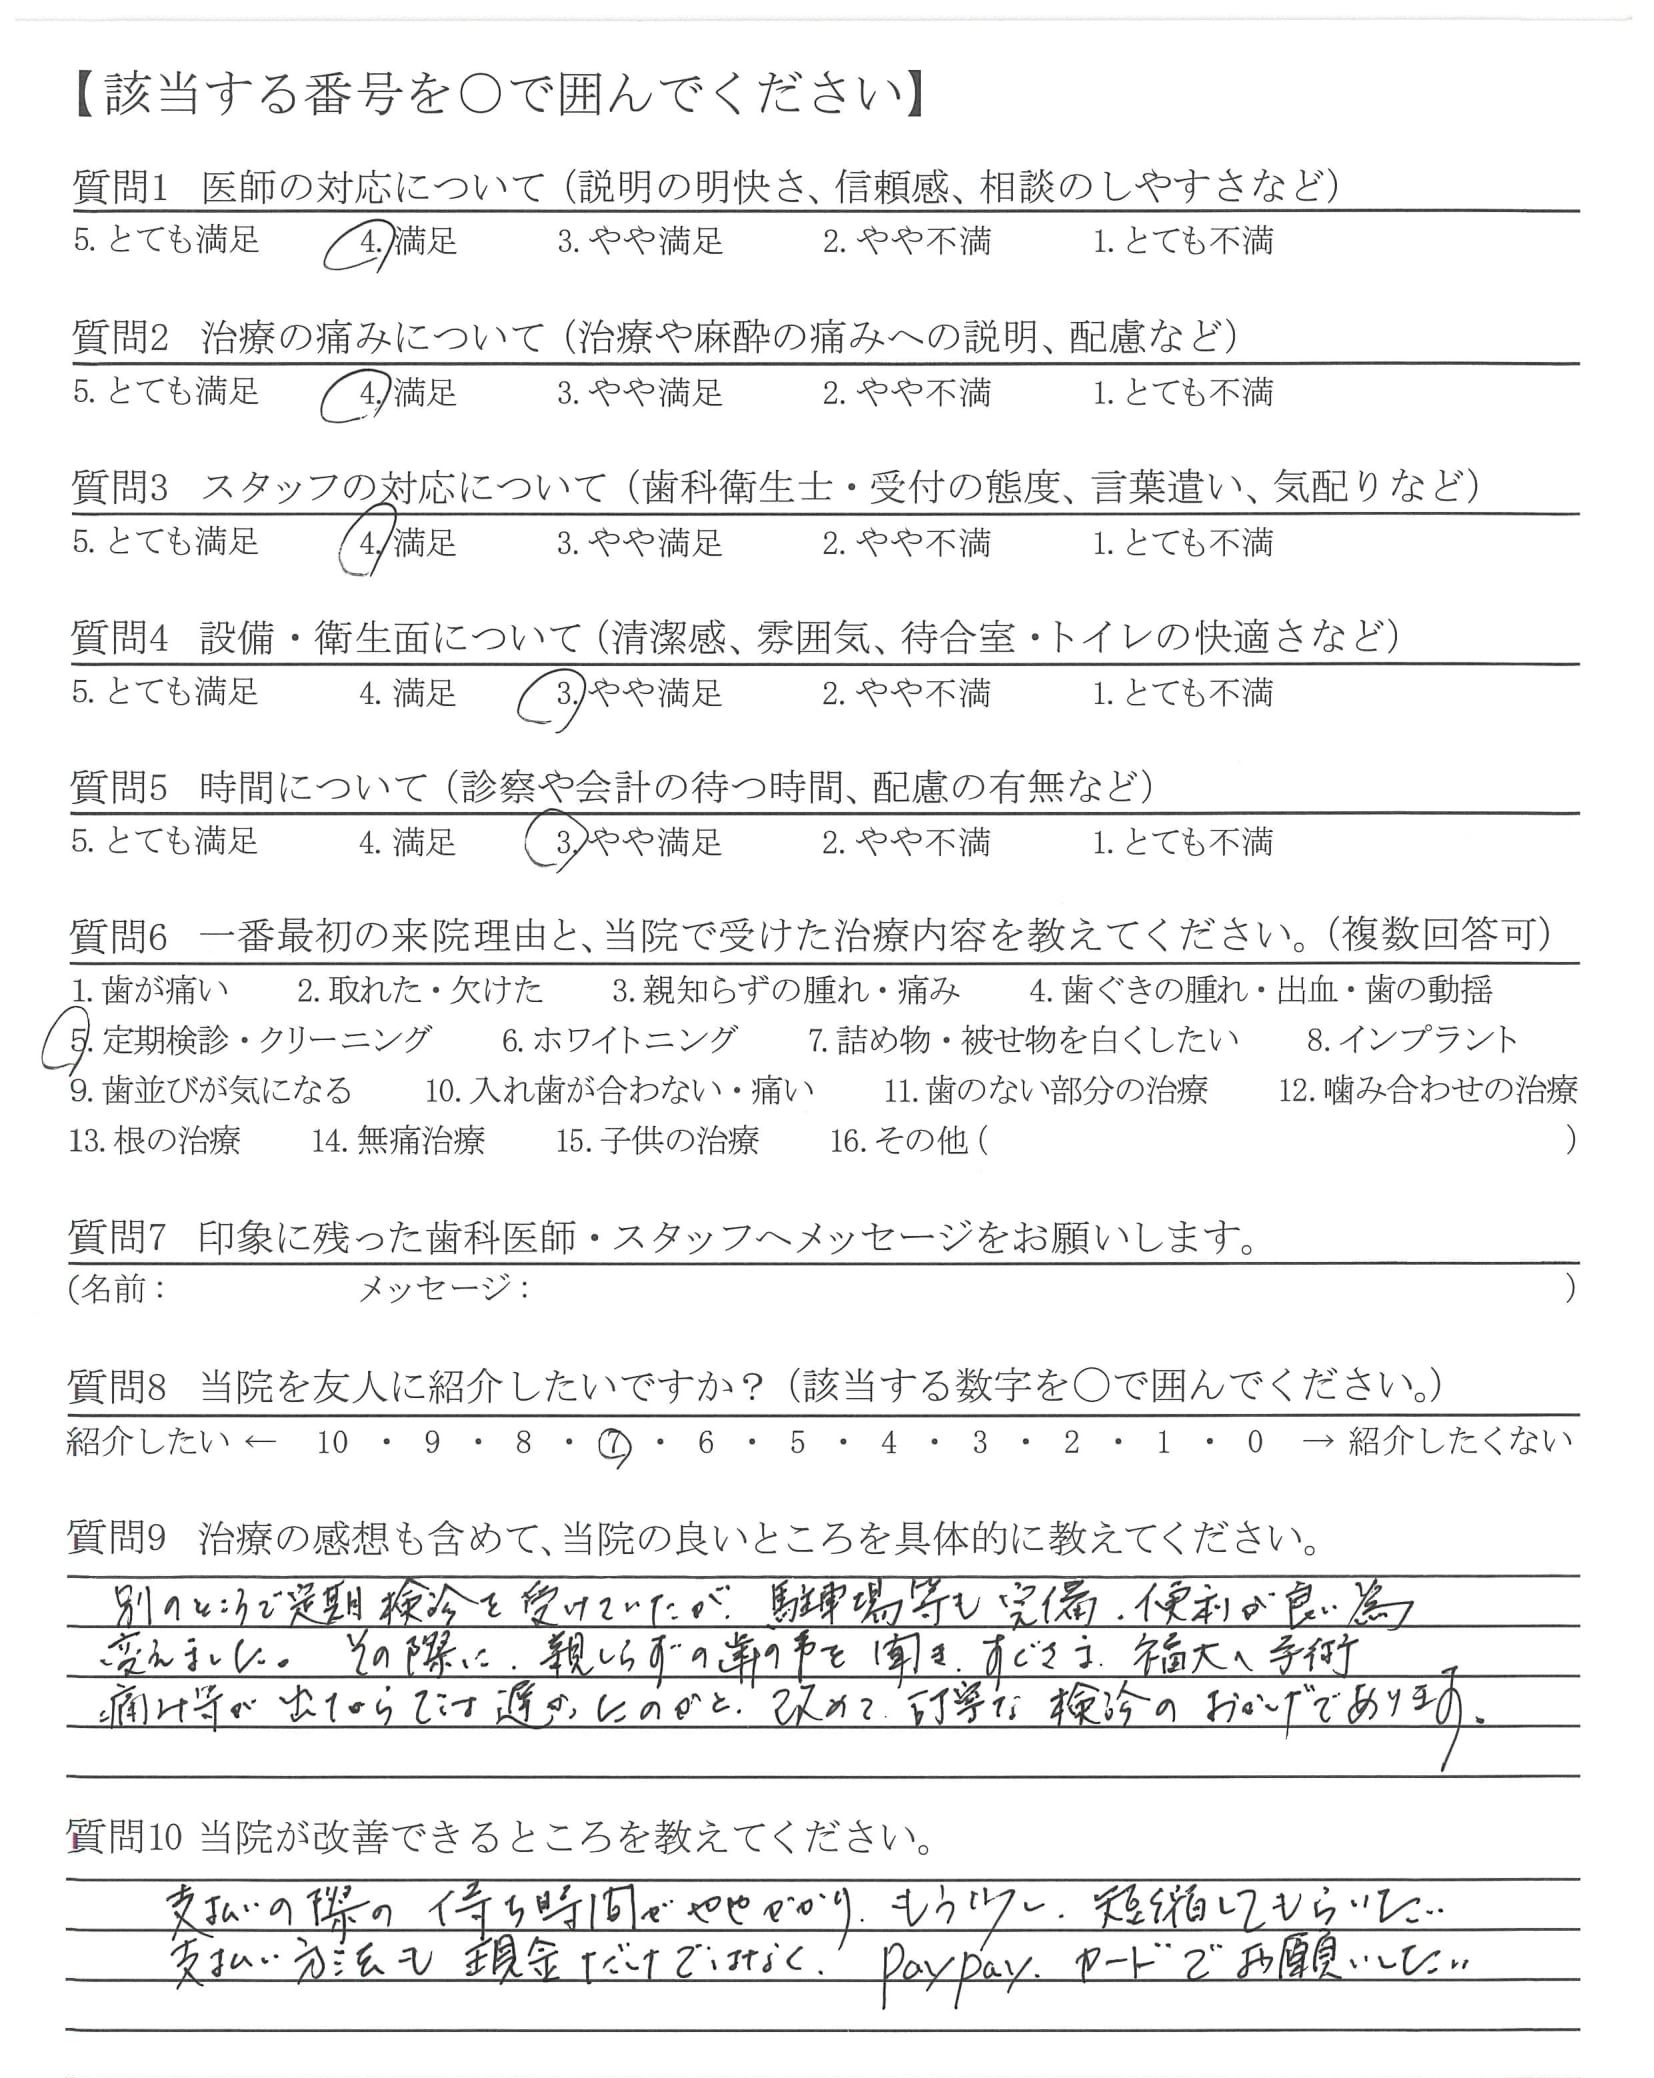 【該当する番号を○で囲んでください】
質問1 医師の対応について（説明の明快さ、信頼感、相談のしやすさなど）
5. とても満足 4. 満足 3. やや満足 2. やや不満 1. とても不満
質問2 治療の痛みについて（治療や麻酔の痛みへの説明、配慮など）
5. とても満足 4. 満足 3. やや満足 2. やや不満 1. とても不満
質問3 スタッフの対応について（歯科衛生士・受付の態度、言葉遣い、気配りなど）
5. とても満足 4. 満足 3. やや満足 2. やや不満 1. とても不満
質問4 設備・衛生面について（清潔感、雰囲気、待合室・トイレの快適さなど）
5. とても満足 4. 満足 3. やや満足 2. やや不満 1. とても不満
質問5 時間について（診察や会計の待つ時間、配慮の有無など）
5. とても満足 4. 満足 3. やや満足 2. やや不満 1. とても不満
質問6 一番最初の来院理由と、当院で受けた治療内容を教えてください。（複数回答可）
1. 歯が痛い 2. 取れた・欠けた 3. 親知らずの腫れ・痛み 4. 歯ぐきの腫れ・出血・歯の動揺
5. 定期検診・クリーニング 6. ホワイトニング 7. 詰め物・被せ物を白くしたい 8. インプラント
9. 歯並びが気になる 10. 入れ歯が合わない・痛い 11. 歯のない部分の治療 12. 噛み合わせの治療
13. 根の治療 14. 無痛治療 15. 子供の治療 16. その他 ( )
質問7 印象に残った歯科医師・スタッフへメッセージをお願いします。
(名前： メッセージ： )
質問8 当院を友人に紹介したいですか？（該当する数字を○で囲んでください。）
紹介したい ← 10 ・ 9 ・ 8 ・ 7 ・ 6 ・ 5 ・ 4 ・ 3 ・ 2 ・ 1 ・ 0 → 紹介したくない
質問9 治療の感想も含めて、当院の良いところを具体的に教えてください。
別のところで定期検診を受けていたが、駐車場等も完備、便利が良い為
変えました。その際に、親しらずの歯の事を聞き、すぐさま、福大へ手術
痛み等が出てからでは遅かったのかと、改めて、丁寧な検診のおかげであります。
質問10 当院が改善できるところを教えてください。
支払いの際の待ち時間がややかかり、もう少し、短縮してもらいたい
支払い方法も現金だけではなく、paypay、カードでお願いしたい